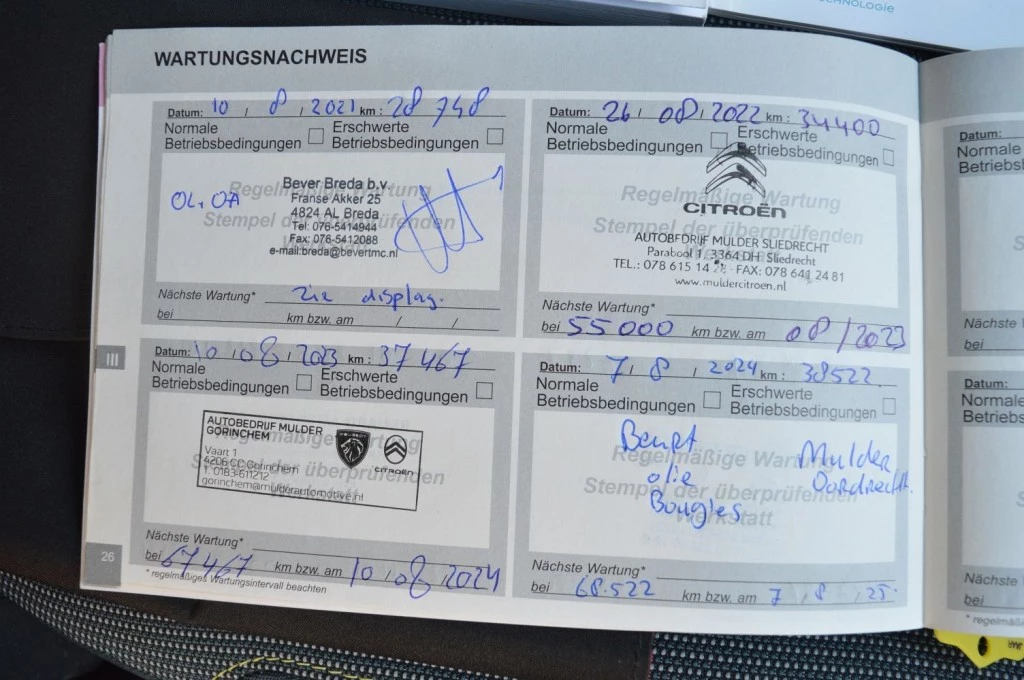 CHNOLOGIE
WARTUNGSNACHWEIS
Datum: 10 / 8 / 2021 km: 28 748
Normale Betriebsbedingungen
Erschwerte Betriebsbedingungen
Regelmäßige Wartung
Stempel der überprüfenden
Bever Breda b.v.
Franse Akker 25
4824 AL Breda
Tel: 076-5414944
Fax: 076-5412088
e-mail:breda@bevertmc.nl
Nächste Wartung* Zie display.
bei km bzw. am / /
Datum: 26 / 08 / 2022 km: 34400
Normale Betriebsbedingungen
Erschwerte Betriebsbedingungen
Regelmäßige Wartung
Stempel der überprüfenden
CITROËN
AUTOBEDRIJF MULDER SLIEDRECHT
Parabool 1, 3364 DH Sliedrecht
TEL.: 078 615 14 FAX: 078 641 24 81
www.muldercitroen.nl
Nächste Wartung*
bei 55000 km bzw. am 08/2023
III
Datum: 10 / 08 / 2023 km: 37467
Normale Betriebsbedingungen
Erschwerte Betriebsbedingungen
Regelmäßige Wartung
Stempel der überprüfenden
AUTOBEDRIJF MULDER
GORINCHEM
CITROËN
Vaart 1
4206 CC Gorinchem
T. 0183-611212
gorinchem@mulderautomotive.nl
Nächste Wartung*
bei 67467 km bzw. am 10/08/2024
* regelmäßiges Wartungsintervall beachten
26
Datum: 7 / 8 / 2024 km: 38522
Normale Betriebsbedingungen
Erschwerte Betriebsbedingungen
Regelmäßige Wartung
Stempel der überprüfenden
Werkstatt
Beurt
olie
Bougies
Mulder
Dordrecht.
Nächste Wartung*
bei 68.522 km bzw. am 7 / 8 / 25
Datum:
Normale
Betriebs
Nächste
bei
Datum:
Normal
Betriebs
Nächste
bei